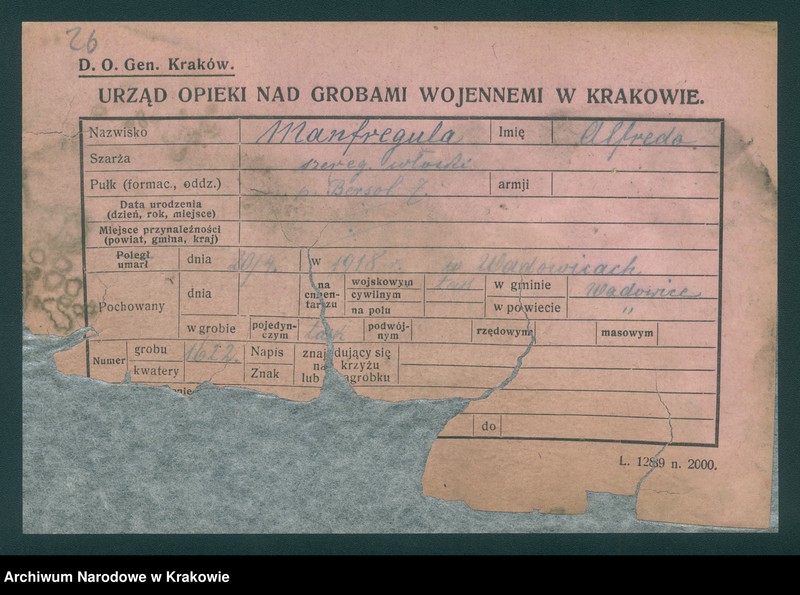 26
D. O. Gen. Kraków.
URZĄD OPIEKI NAD GROBAMI WOJENNEMI W KRAKOWIE.
Nazwisko Manfregula Imię Alfredo
Szarża szereg. włoski
Pułk (formac., oddz.) Bersol armji
Data urodzenia
(dzień, rok, miejsce)
Miejsce przynależności
(powiat, gmina, kraj)
Poległ
umarł dnia 20/4. w 1918 r. w Wadowicach.
Pochowany dnia na cmentarzu wojskowym tak w gminie Wadowice
cywilnym
na polu w powiecie "
w grobie pojedynczym tak podwójnym rzędowym masowym
Numer grobu Napis znajdujący się
kwatery Znak na krzyżu
lub nagrobku
do
L. 1289 n. 2000.
Archiwum Narodowe w Krakowie